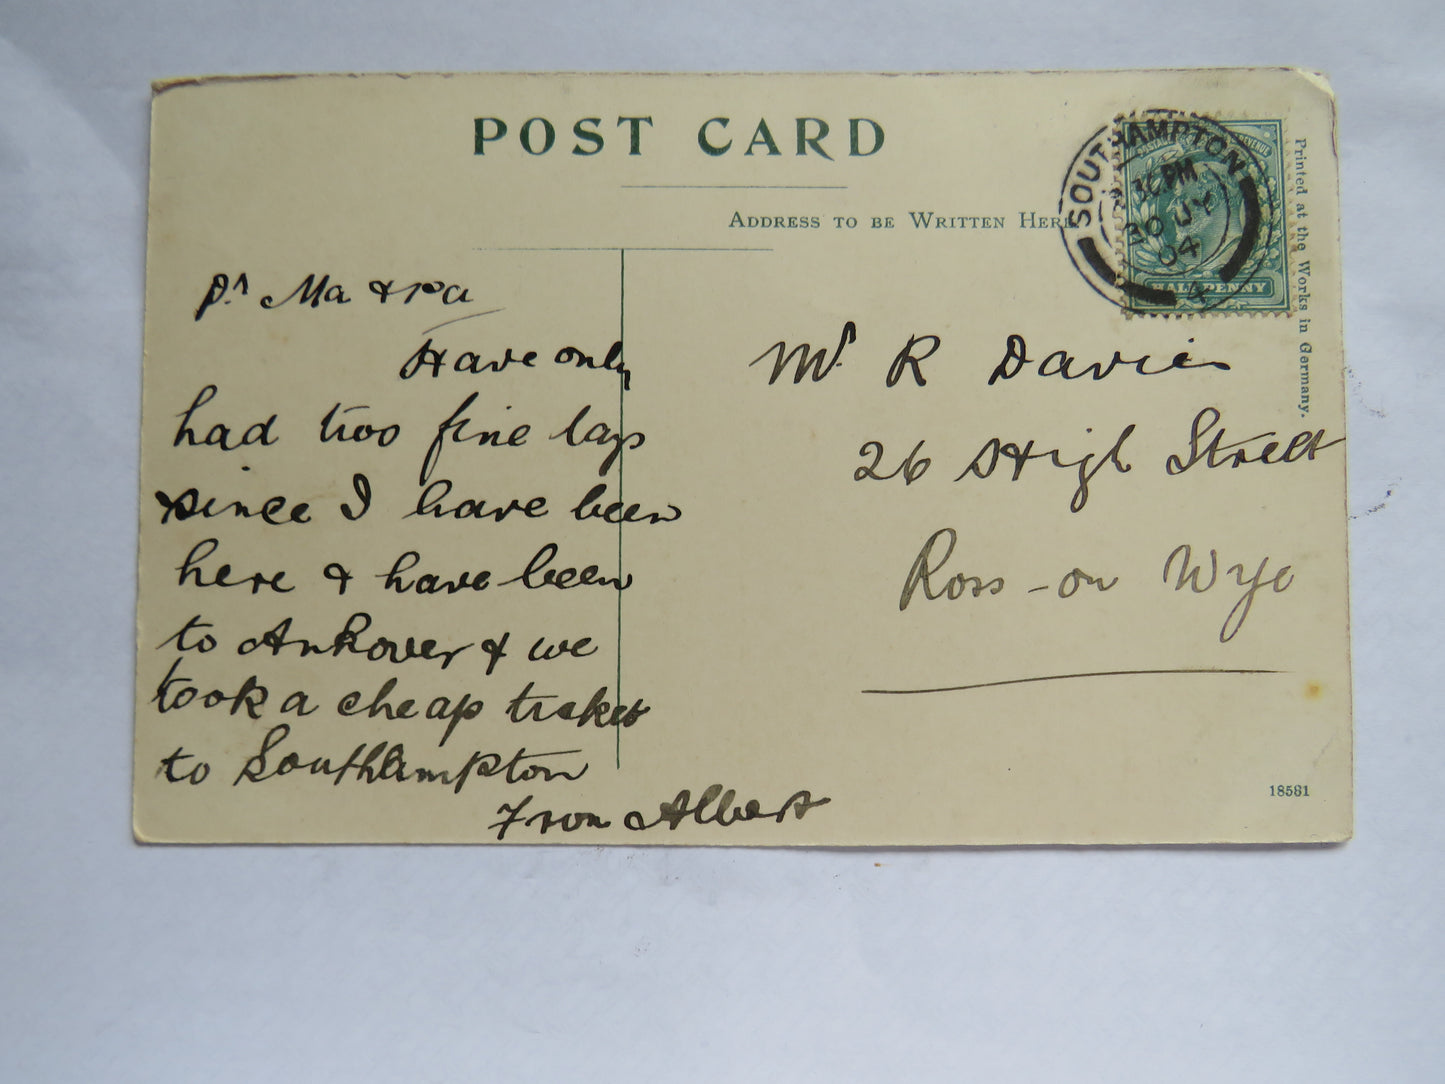 POST CARD
ADDRESS TO BE WRITTEN HERE
SOUTHAMPTON
30 PM
30 JY
04
HALFPENNY
Printed at the Works in Germany.
Dr Ma & Pa
Have only
had two fine days
since I have been
here & have been
to Andover & we
took a cheap ticket
to Southampton
From Albert
Mr R Davies
26 High Street
Ross-on Wye
18581